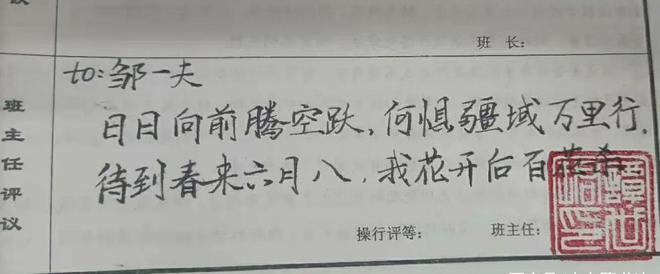 议
班 长:
to: 邹一夫
日日向前腾空跃,何惧疆域万里行.
待到春来六月八,我花开后百花杀
班主任评议
操行评等: 班主任: